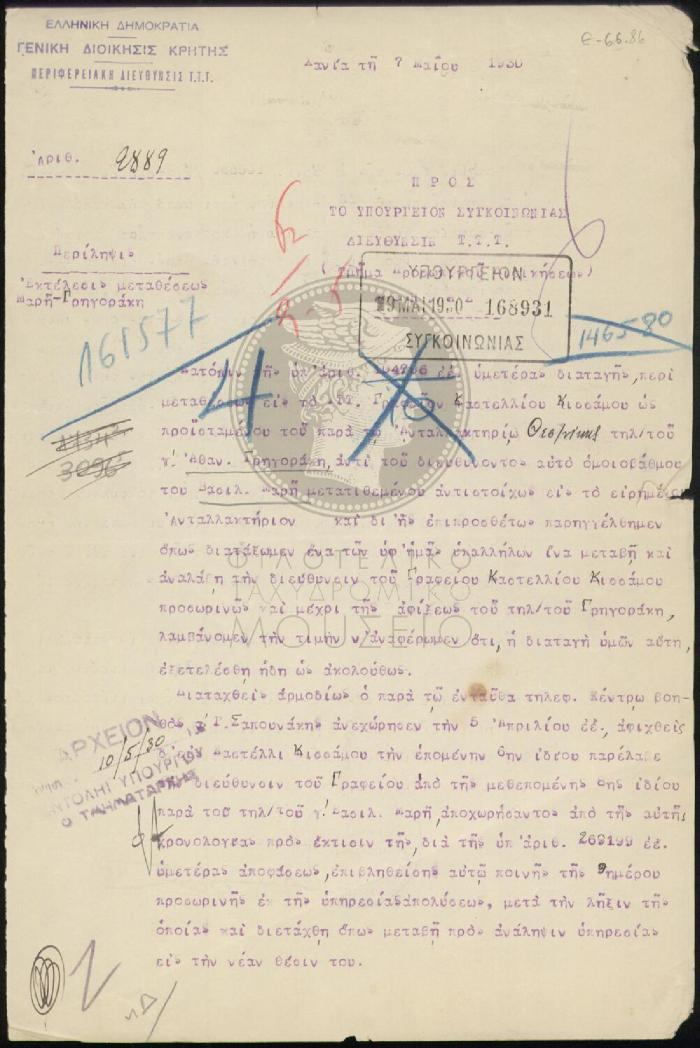 ΕΛΛΗΝΙΚΗ ΔΗΜΟΚΡΑΤΙΑ
ΓΕΝΙΚΗ ΔΙΟΙΚΗΣΙΣ ΚΡΗΤΗΣ
ΠΕΡΙΦΕΡΕΙΑΚΗ ΔΙΕΥΘΥΝΣΙΣ Τ.Τ.Τ.
Ε-66.86
Χανία τῇ 7 Μαΐου 1930
Ἀριθ. 2889
ΠΡΟΣ
ΤΟ ΥΠΟΥΡΓΕΙΟΝ ΣΥΓΚΟΙΝΩΝΙΑΣ
ΔΙΕΥΘΥΝΣΙΝ Τ.Τ.Τ.
Περίληψις
Ἐκτέλεσις μεταθέσεως
Μαρῆ-Γρηγοράκη
ΥΠΟΥΡΓΕΙΟΝ
9 ΜΑΙ 1930 168931
ΣΥΓΚΟΙΝΩΝΙΑΣ
161577
146580
Κατόπιν τῆς ὑπ'ἀριθ. ἐ.ἔ. ὑμετέρας διαταγῆς, περὶ
μεταθέσεως εἰς τὸ Γραφεῖον Καστελλίου Κισσάμου ὡς
προϊσταμένου τοῦ παρὰ τῷ Ἀνταλλακτηρίῳ τηλ/τοῦ
γ' Ἀθαν. Γρηγοράκη, ἀντὶ τοῦ διευθύνοντος αὐτὸ ὁμοιοβάθμου
του Βασιλ. Μαρῆ μετατιθεμένου ἀντιστοίχως εἰς τὸ εἰρημένον
Ἀνταλλακτήριον καὶ δι'ἧς ἐπιπροσθέτως παρηγγέλθημεν
ὅπως διατάξωμεν ἕνα τῶν ὑφ'ἡμᾶς ὑπαλλήλων ἵνα μεταβῇ καὶ
ἀναλάβῃ τὴν διεύθυνσιν τοῦ Γραφείου Καστελλίου Κισσάμου
προσωρινῶς καὶ μέχρι τῆς ἀφίξεως τοῦ τηλ/τοῦ Γρηγοράκη,
λαμβάνομεν τὴν τιμὴν ν'ἀναφέρωμεν ὅτι, ἡ διαταγὴ ὑμῶν αὕτη,
ἐξετελέσθη ἤδη ὡς ἀκολούθως.
Διαταχθεὶς ἁρμοδίως ὁ παρὰ τῷ ἐνταῦθα τηλεφ. Κέντρῳ βοη-
θὸς Γ. Σαπουνάκης ἀνεχώρησεν τὴν 5 Ἀπριλίου ἐ.ἔ. ἀφιχθεὶς
Καστέλλι Κισσάμου τὴν ἑπομένην 6ην ἰδίου παρέλαβε
διεύθυνσιν τοῦ Γραφείου ἀπὸ τῆς μεθεπομένης ἰδίου
παρὰ τοῦ τηλ/τοῦ γ' Βασιλ. Μαρῆ, ἀποχωρήσαντος ἀπὸ τῆς αὐτῆς
χρονολογίας πρὸς ἔκτισιν τῆς, διὰ τῆς ὑπ'ἀριθ. 269199 ἐ.ἔ.
ὑμετέρας ἀποφάσεως, ἐπιβληθείσης αὐτῷ ποινῆς τῆς 9ημέρου
προσωρινῆς ἐκ τῆς ὑπηρεσίας ἀπολύσεως, μετὰ τὴν λῆξιν τῆς
ὁποίας καὶ διετάχθη ὅπως μεταβῇ πρὸς ἀνάληψιν ὑπηρεσίας
εἰς τὴν νέαν θέσιν του.
ΑΡΧΕΙΟΝ
10/5/30
ΕΝΤΟΛΗ ΥΠΟΥΡΓΟΥ
Ο ΤΜΗΜΑΤΑΡΧΗΣ
ΦΙΛΟΤΕΛΙΚΟ
ΤΑΧΥΔΡΟΜΙΚΟ
ΜΟΥΣΕΙΟ